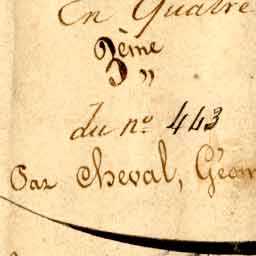 En Quatre
3ème
"
du nº 443
Par Cheval, Géom